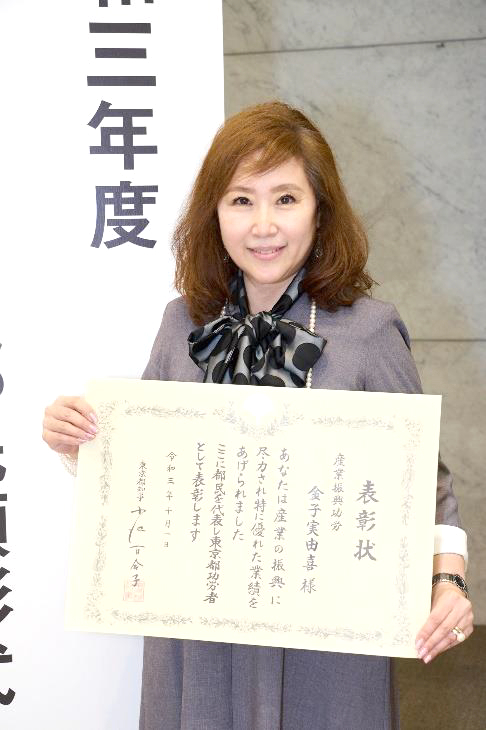 和三年度
表彰状
産業振興功労
金子実由喜様
あなたは産業の振興に
尽力され特に優れた業績を
あげられました
ここに都民を代表し東京都功労者
として表彰します
令和三年十月一日
東京都知事 小池百合子
表彰式